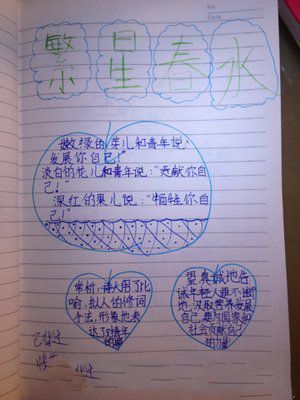 No
Date
繁星春水
嫩绿的芽儿和青年说:
发展你自己!"
淡白的花儿和青年说:"贡献你自
己!"
深红的果儿说:"牺牲你自
己!"
赏析:诗人用了比
喻,拟人的修词
手法,形象地表
达了对青年
的
望,真诚地告
诫年轻人要不断
地汲取营养发展
自己,要为国家和
社会贡献自己
的力量!